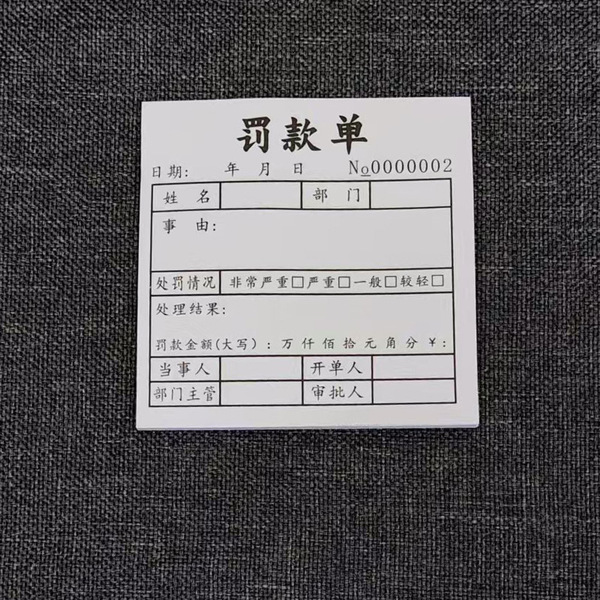 罚款单
日期: 年 月 日 No0000002
姓 名 部 门
事 由:
处罚情况 非常严重□严重□一般□较轻□
处理结果:
罚款金额(大写): 万 仟 佰 拾 元 角 分 ¥:
当事人 开单人
部门主管 审批人